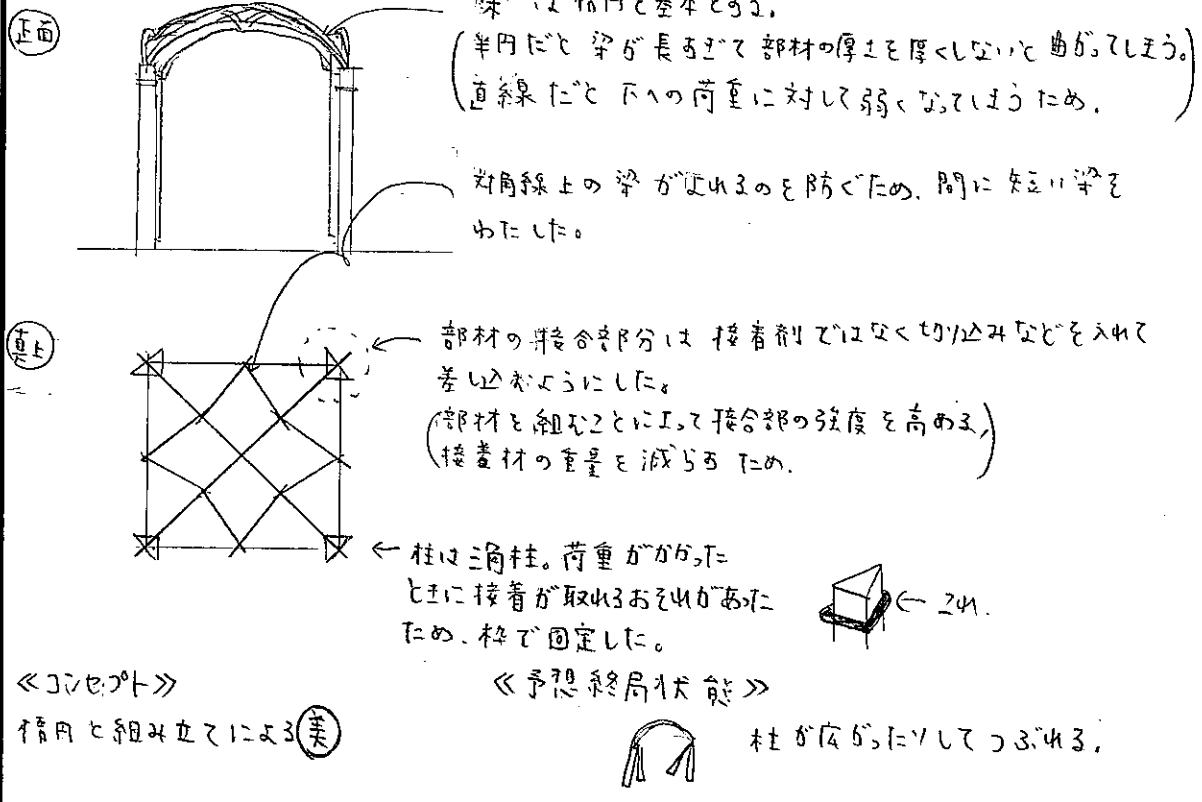 正面
は楕円を基本とする。
(半円だと梁が長すぎて部材の厚さを厚くしないと曲がってしまう。
直線だと下への荷重に対して弱くなってしまうため。)
対角線上の梁がよれるのを防ぐため、間に短い梁を
わたした。
真上
← 部材の接合部分は接着剤ではなく切り込みなどを入れて
差し込むようにした。
(部材を組むことによって接合部の強度を高める、
接着材の重量を減らすため。)
← 柱は三角柱。荷重がかかった
ときに接着が取れるおそれがあった
ため、枠で固定した。
← これ.
≪コンセプト≫
楕円と組み立てによる美
≪予想終局状態≫
柱が広がったりしてつぶれる.